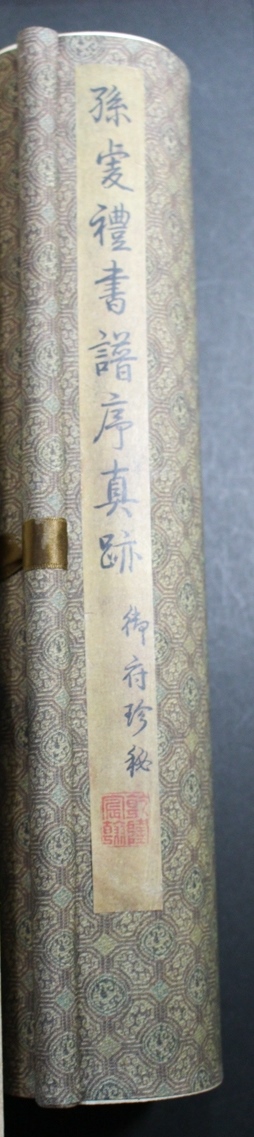 孫虔禮書譜序真跡
御府珍秘